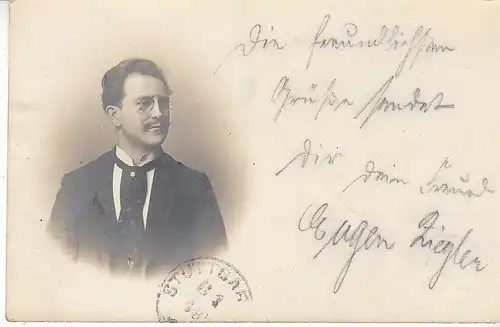 Die freundlichsten
Grüße sendet
Dir dein Freund
Eugen Ziegler
STUTTGAR